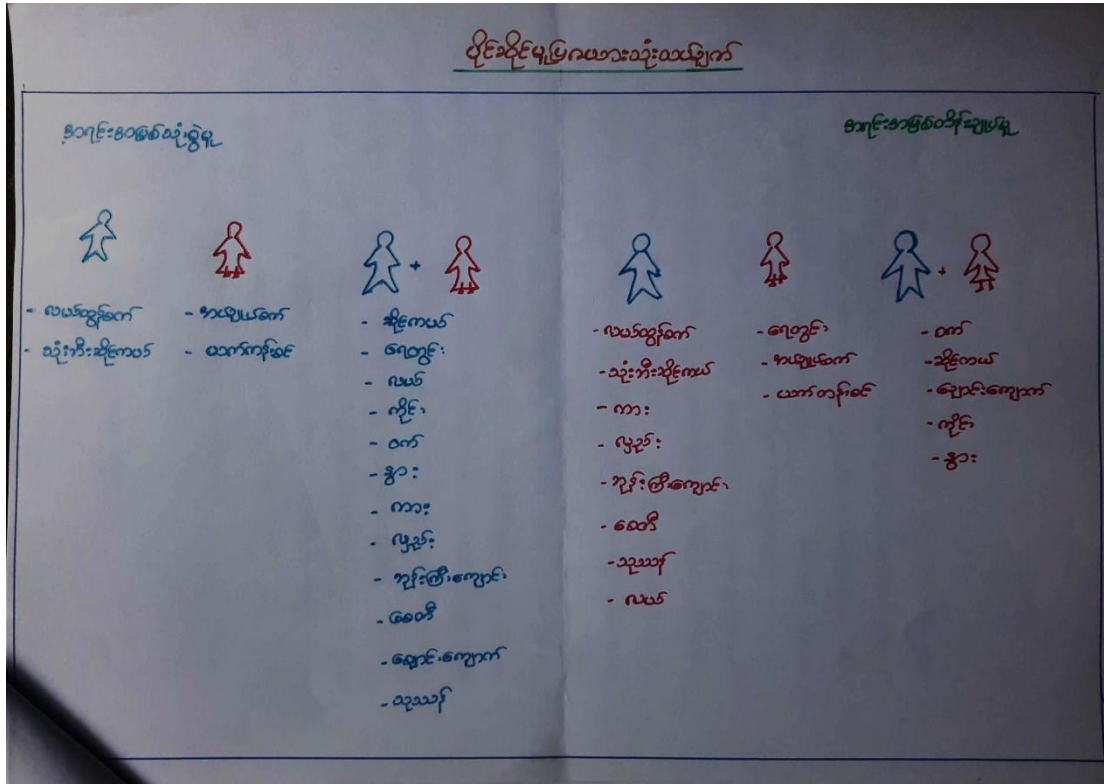 ပိုင်ဆိုင်မှုပြဇယားသုံးသပ်ချက်
အရင်းအမြစ်သုံးစွဲမှု
- လယ်ထွန်စက်
- သုံးဘီးဆိုင်ကယ်
- အချုပ်စက်
- ယက်ကန်းစင်
- ဆိုင်ကယ်
- ရေတွင်း
- လယ်
- ကိုင်း
- ဝက်
- နွား
- ကား
- လှည်း
- ဘုန်းကြီးကျောင်း
- စေတီ
- ချောင်းကျောက်
- သုဿန်
အရင်းအမြစ်ထိန်းချုပ်မှု
- လယ်ထွန်စက်
- သုံးဘီးဆိုင်ကယ်
- ကား
- လှည်း
- ဘုန်းကြီးကျောင်း
- စေတီ
- သုဿန်
- လယ်
- ရေတွင်း
- အချုပ်စက်
- ယက်ကန်းစင်
- ဝက်
- ဆိုင်ကယ်
- ချောင်းကျောက်
- ကိုင်း
- နွား